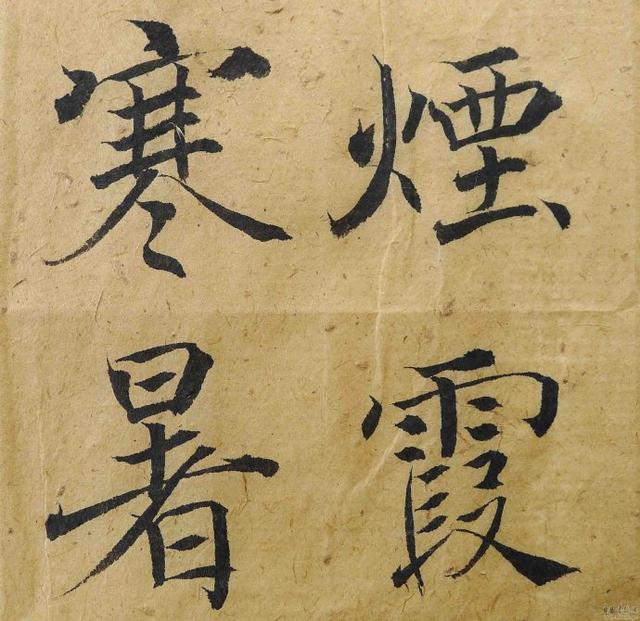 煙霞
寒暑